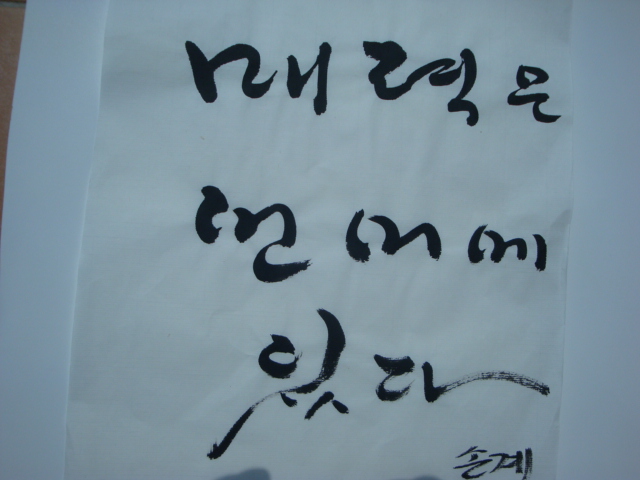 매력은
언어에
있다
손계